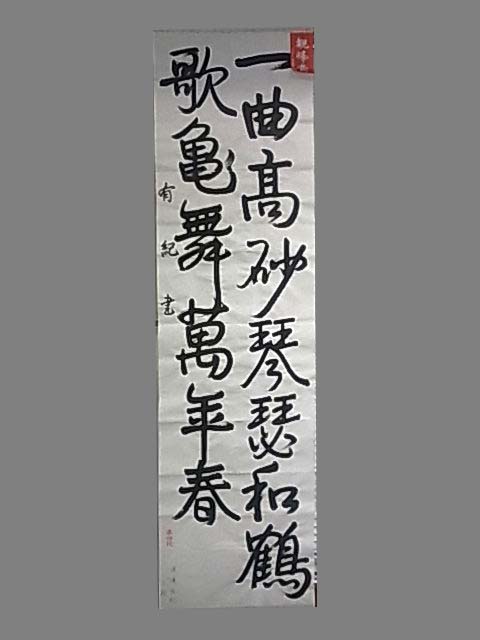 一曲高砂琴瑟和鶴
歌亀舞萬年春
有紀書